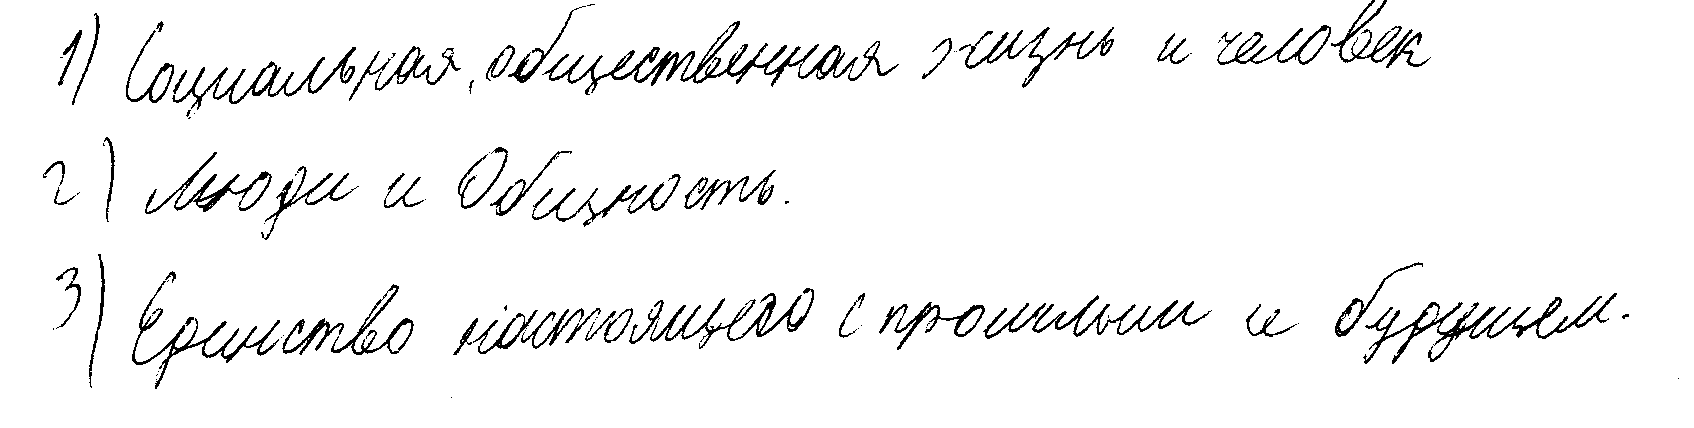 1) Социальная, общественная жизнь и человек
2) Люди и Общность.
3) Единство настоящего с прошлым и будущем.